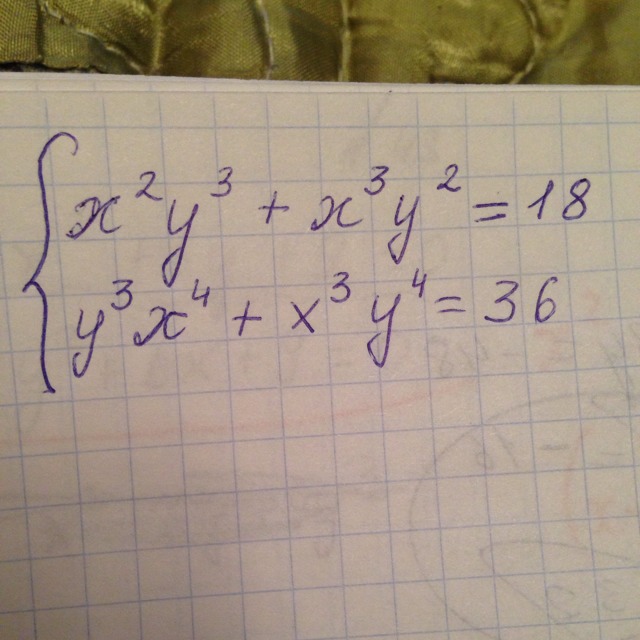 x²y³ + x³y² = 18
y³x⁴ + x³y⁴ = 36